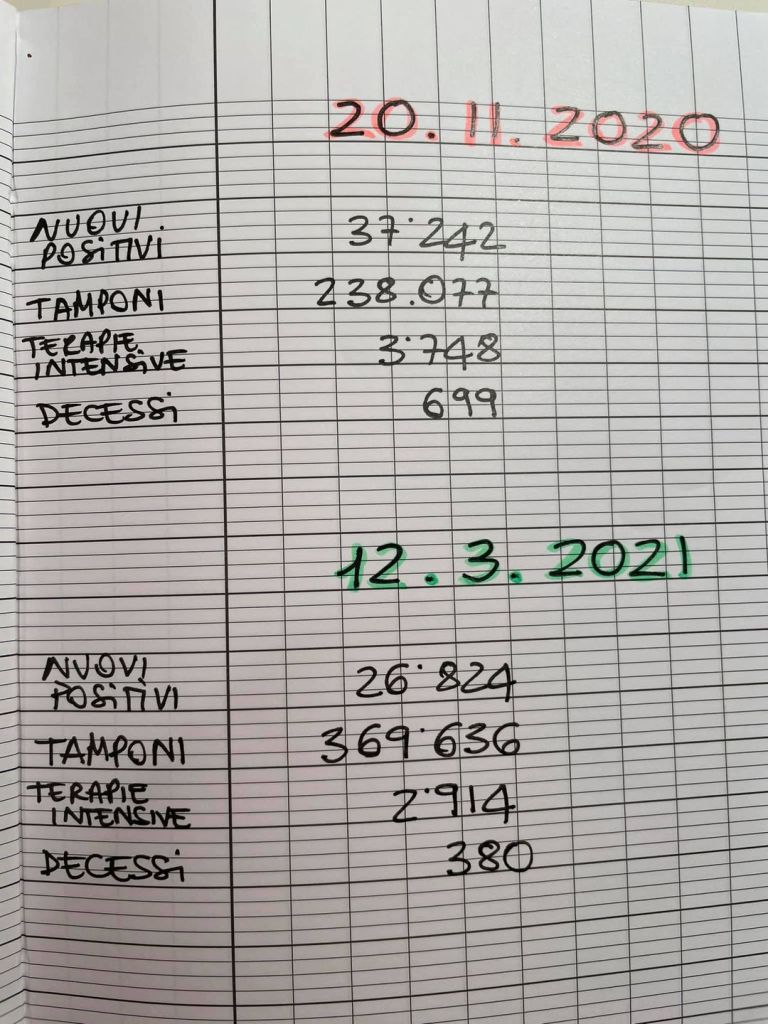 20.11.2020
NUOVI
POSITIVI 37'242
TAMPONI 238.077
TERAPIE
INTENSIVE 3'748
DECESSI 699
12.3.2021
NUOVI
POSITIVI 26'824
TAMPONI 369'636
TERAPIE
INTENSIVE 2'914
DECESSI 380